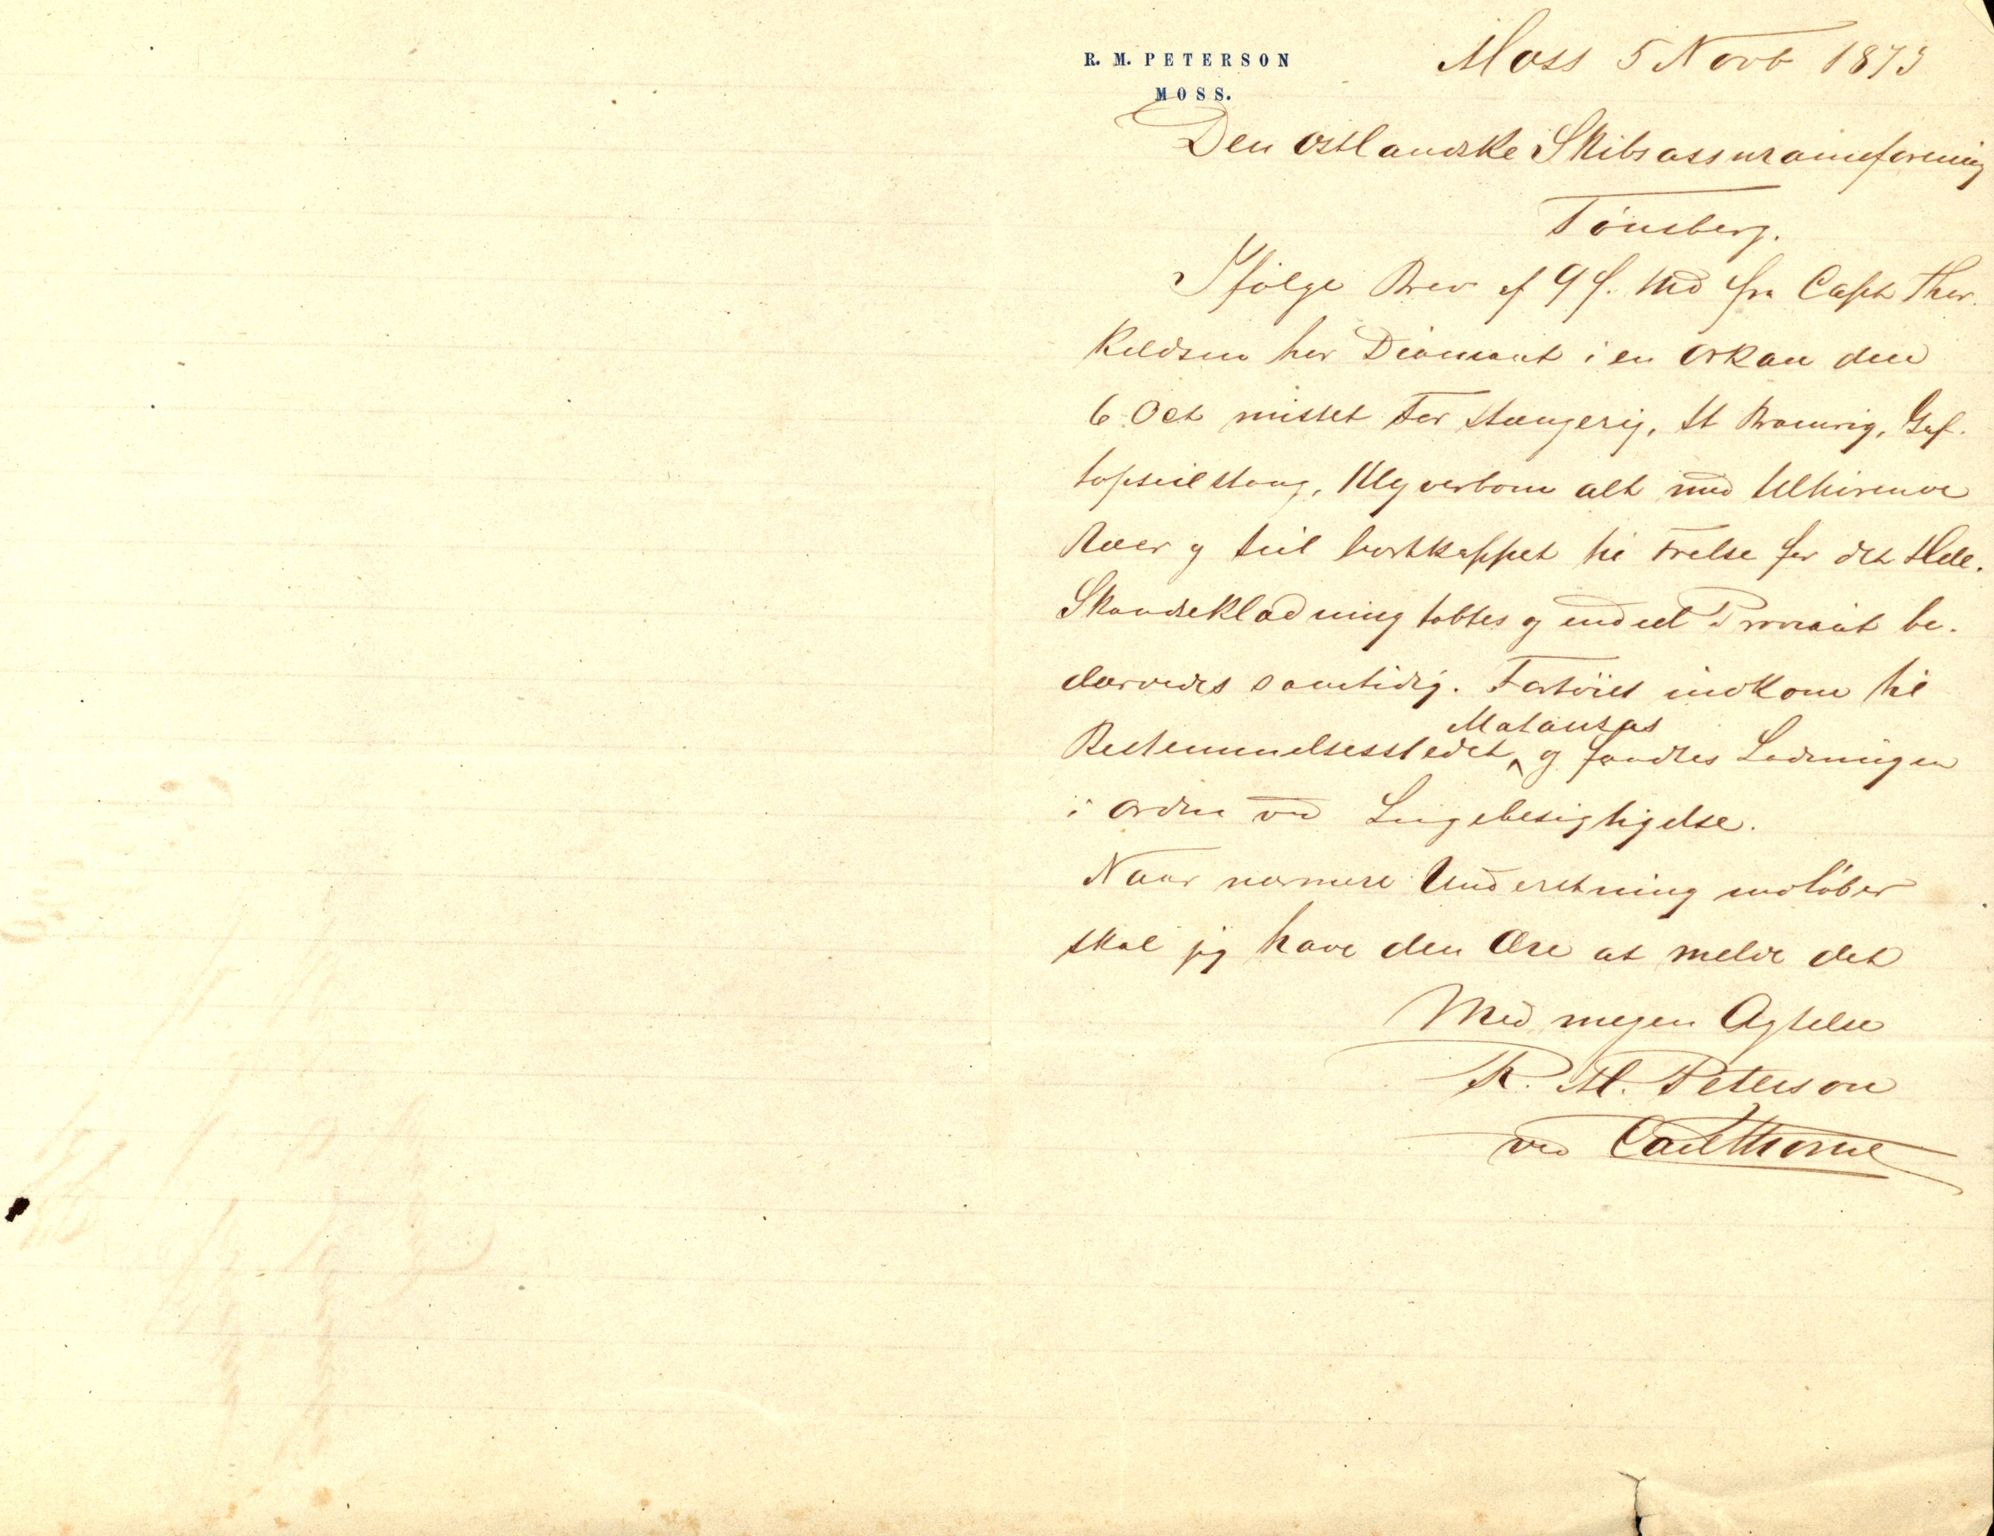 R. M. PETERSON
MOSS.
Moss 5 Novb 1873
Den østlandske Skibsassuranceforening
Tönsberg.
Ifölge Brev af 9 f. Md fra Capt Ther-
kildsen har Diamant i en Orkan den
6 Oct mistet For Stængerig, St Bramrig, Gaf-
topseilstang, Klyverbom alt med tilhörende
Ræer og Seil bortkappet til Frelse for det Hele.
Skandseklædning tabtes og endeel Proviant be-
dærvedes samtidig. Fartöiet indkom til
Bestemmelsesstedet Matanzas og fandtes Ladningen
i Orden ved Lugebesigtigelse.
Naar nærmere Underretning indlöber
skal jeg have den Ære at melde det
Med megen Agtelse
R. M. Peterson
ved Carl Thorne